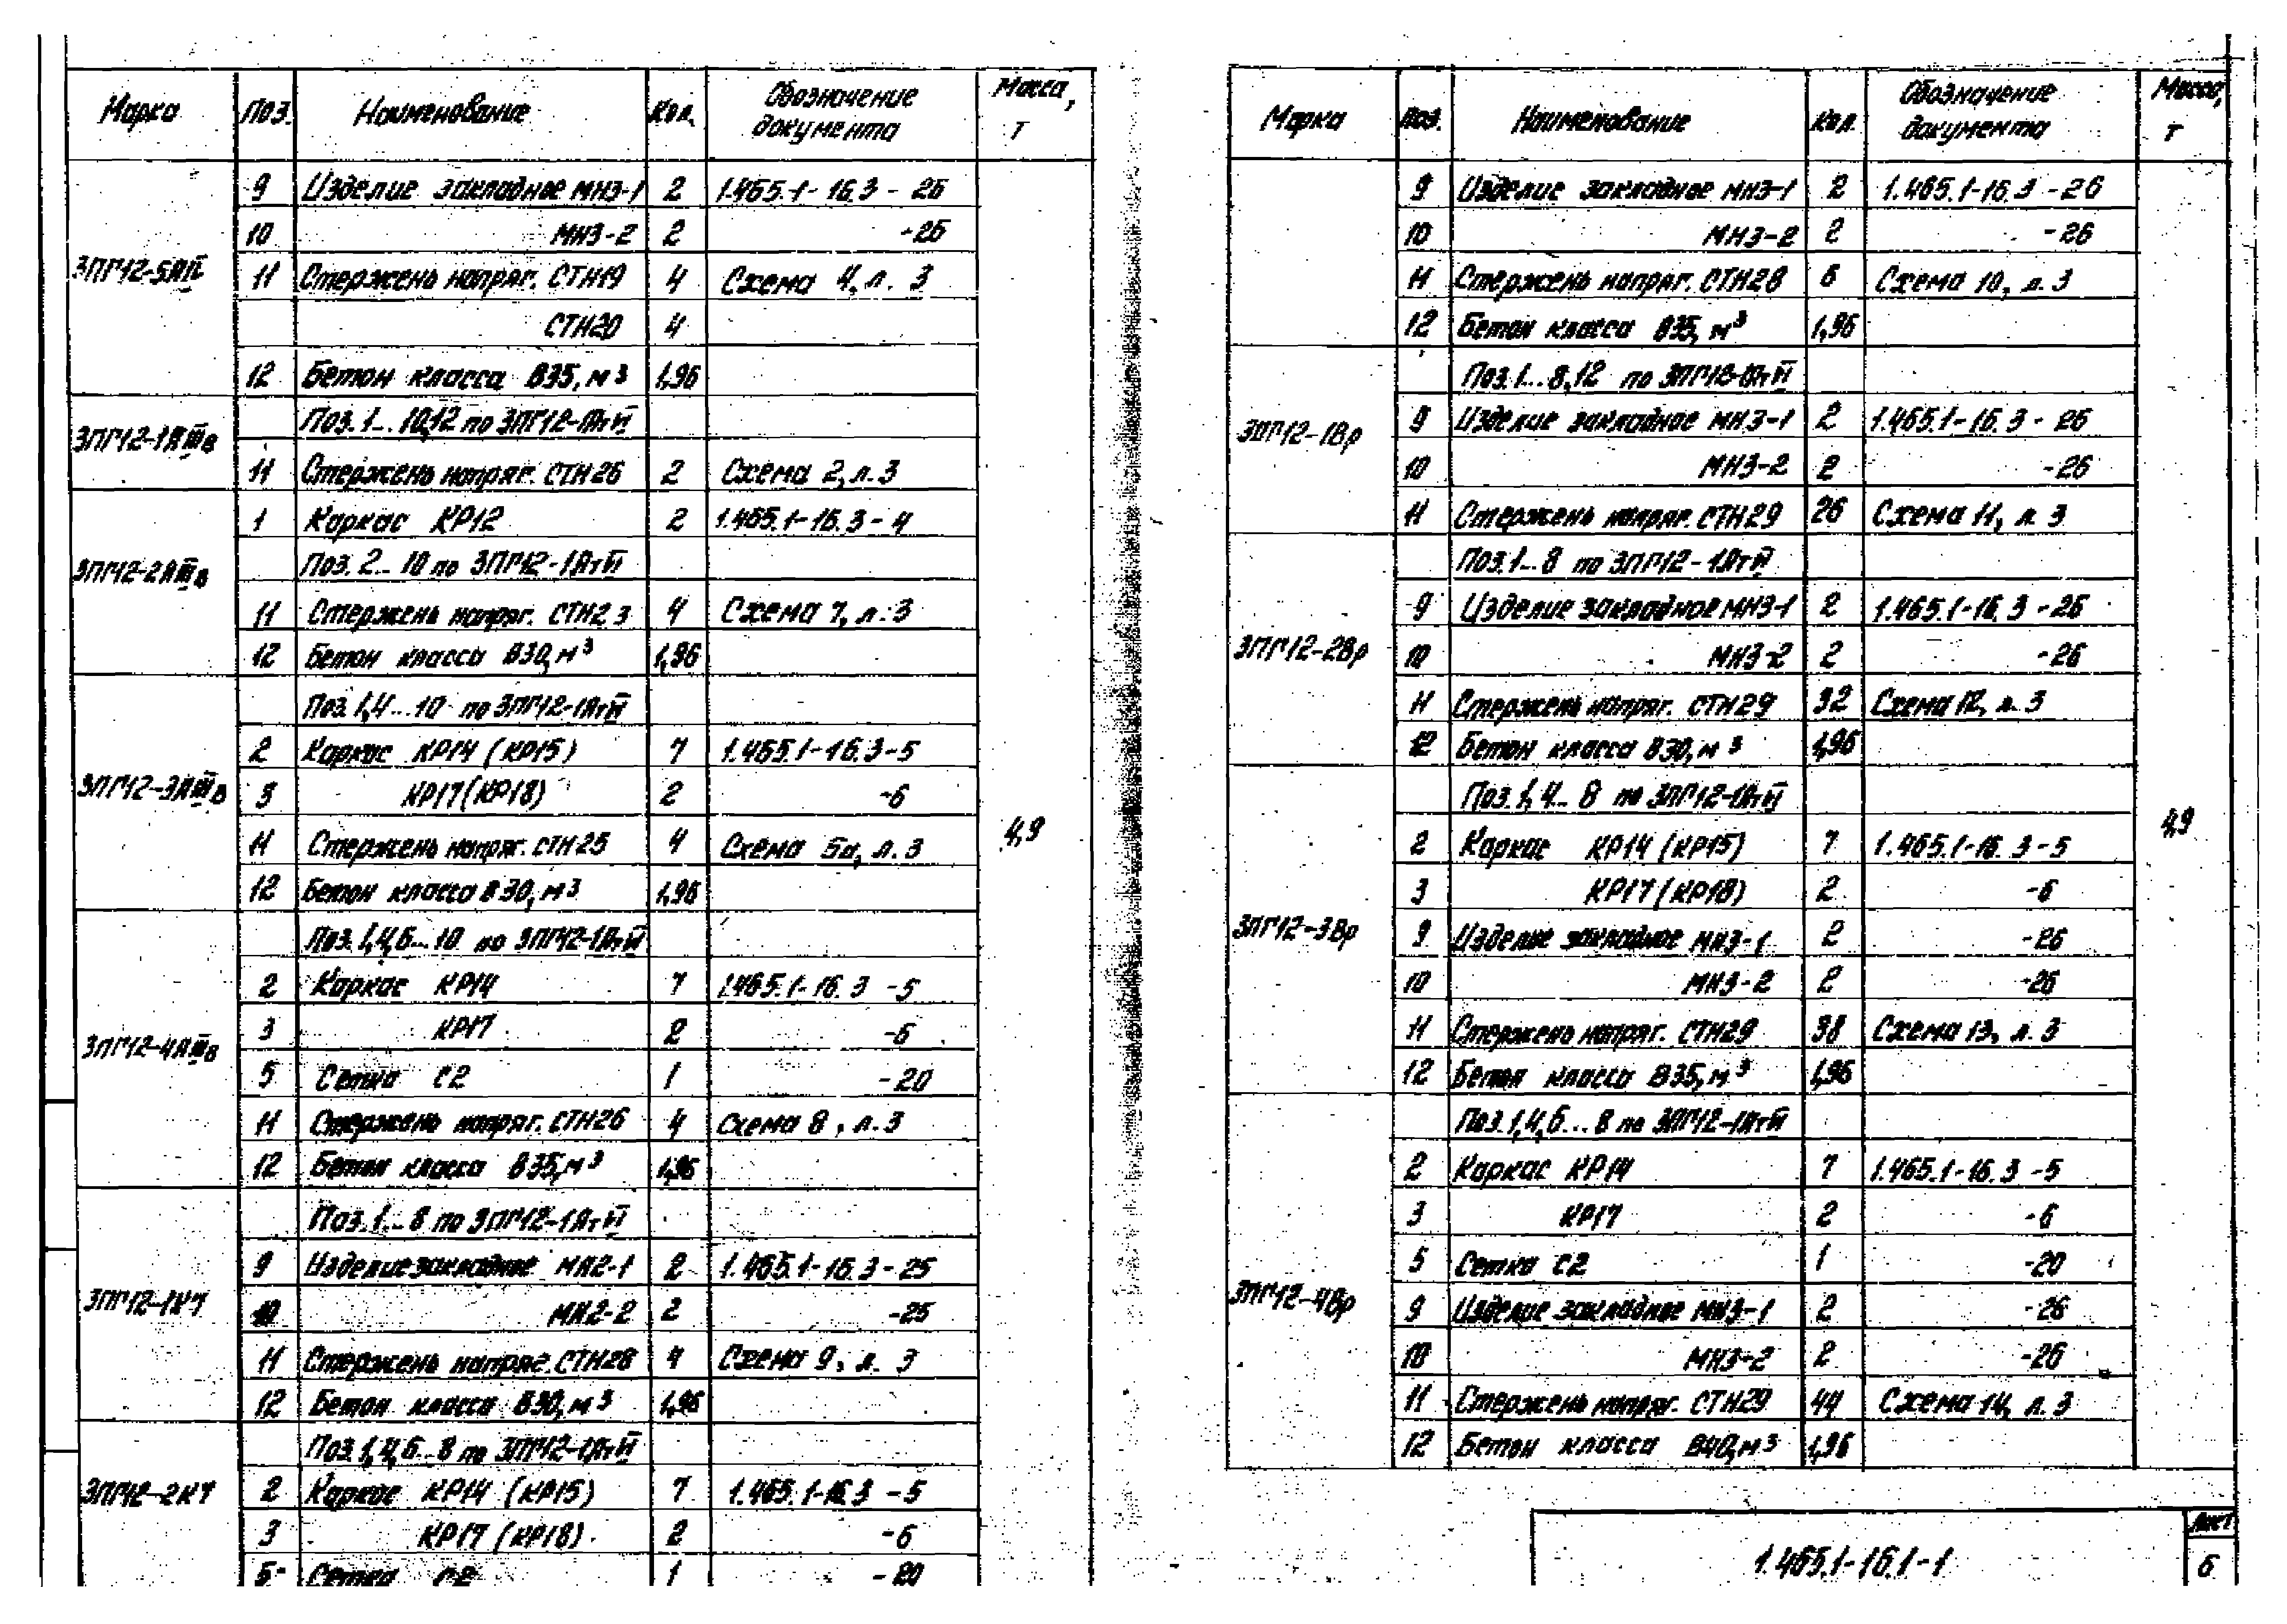 Марка Поз. Наименование Кол. Обозначение документа Масса, т
9 Изделие закладное МН3-1 2 1.465.1-16.3-26
10 МН3-2 2 -26
3ПГ12-5АIV 11 Стержень напряг. СТН19 4 Схема 4, л. 3
СТН20 4
12 Бетон класса В35, м³ 1,96
Поз. 1...10,12 по 3ПГ12-1АтVI
3ПГ12-1АIIIв
11 Стержень напряг. СТН26 2 Схема 2, л. 3
1 Каркас КР12 2 1.465.1-16.3-4
3ПГ12-2АIIIв Поз. 2...10 по 3ПГ12-1АтVI
11 Стержень напряг. СТН23 4 Схема 7, л. 3
12 Бетон класса В30, м³ 1,96
Поз. 1,4...10 по 3ПГ12-1АтVI
2 Каркас КР14 (КР15) 7 1.465.1-16.3-5
3ПГ12-3АIIIв 3 КР17 (КР18) 2 -6
11 Стержень напряг. СТН25 4 Схема 5а, л. 3 4,9
12 Бетон класса В30, м³ 1,96
Поз. 1,4,6...10 по 3ПГ12-1АтVI
2 Каркас КР14 7 1.465.1-16.3-5
3 КР17 2 -6
3ПГ12-4АIIIв
5 Сетка С2 1 -20
11 Стержень напряг. СТН26 4 Схема 8, л. 3
12 Бетон класса В35, м³ 1,96
Поз. 1...8 по 3ПГ12-1АтVI
9 Изделие закладное МН2-1 2 1.465.1-16.3-25
3ПГ12-1К7 10 МН2-2 2 -25
11 Стержень напряг. СТН28 4 Схема 9, л. 3
12 Бетон класса В30, м³ 1,96
Поз. 1,4,6...8 по 3ПГ12-1АтVI
3ПГ12-2К7 2 Каркас КР14 (КР15) 7 1.465.1-16.3-5
3 КР17 (КР18) 2 -6
5 Сетка С2 1 -20
Марка Поз. Наименование Кол. Обозначение документа Масса, т
9 Изделие закладное МН3-1 2 1.465.1-16.3-26
10 МН3-2 2 -26
11 Стержень напряг. СТН28 6 Схема 10, л. 3
12 Бетон класса В35, м³ 1,96
Поз. 1...8,12 по 3ПГ12-1АтVI
3ПГ12-1Вр 9 Изделие закладное МН3-1 2 1.465.1-16.3-26
10 МН3-2 2 -26
11 Стержень напряг. СТН29 26 Схема 11, л. 3
Поз. 1...8 по 3ПГ12-1АтVI
9 Изделие закладное МН3-1 2 1.465.1-16.3-26
3ПГ12-2Вр 10 МН3-2 2 -26
11 Стержень напряг. СТН29 32 Схема 12, л. 3
12 Бетон класса В30, м³ 1,96
Поз. 1,4...8 по 3ПГ12-1АтVI
4,9
2 Каркас КР14 (КР15) 7 1.465.1-16.3-5
3 КР17 (КР18) 2 -6
3ПГ12-3Вр 9 Изделие закладное МН3-1 2 -26
10 МН3-2 2 -26
11 Стержень напряг. СТН29 38 Схема 13, л. 3
12 Бетон класса В35, м³ 1,96
Поз. 1,4,6...8 по 3ПГ12-1АтVI
2 Каркас КР14 7 1.465.1-16.3-5
3 КР17 2 -6
5 Сетка С2 1 -20
3ПГ12-4Вр 9 Изделие закладное МН3-1 2 -26
10 МН3-2 2 -26
11 Стержень напряг. СТН29 44 Схема 14, л. 3
12 Бетон класса В40, м³ 1,96
1.465.1-16.1-1
Лист
6